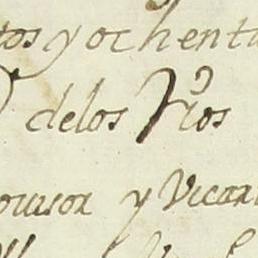 tos y ochenta
delos Rios
ovisor y Vicar